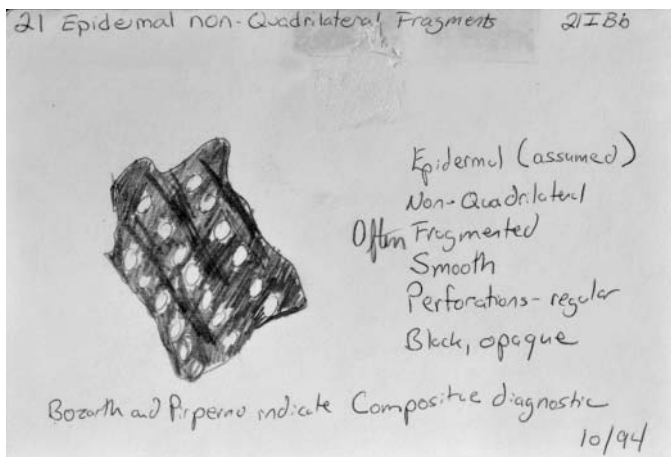 21 Epidermal non-Quadrilateral Fragments 21IBb
Epidermal (assumed)
Non-Quadrilateral
Often Fragmented
Smooth
Perforations - regular
Black, opaque
Bozarth and Piperno indicate Compositae diagnostic
10/94